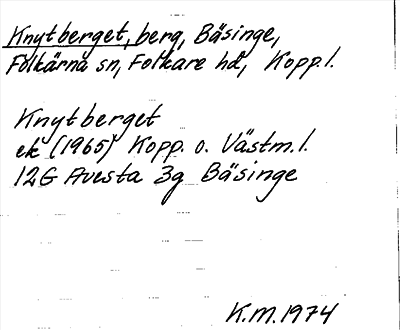 Knytberget, berg, Bäsinge,
Folkärna sn, Folkare hd, Kopp.l.
Knytberget
ek (1965) Kopp. o. Västm.l.
12G Avesta 3g Bäsinge
K.M. 1974